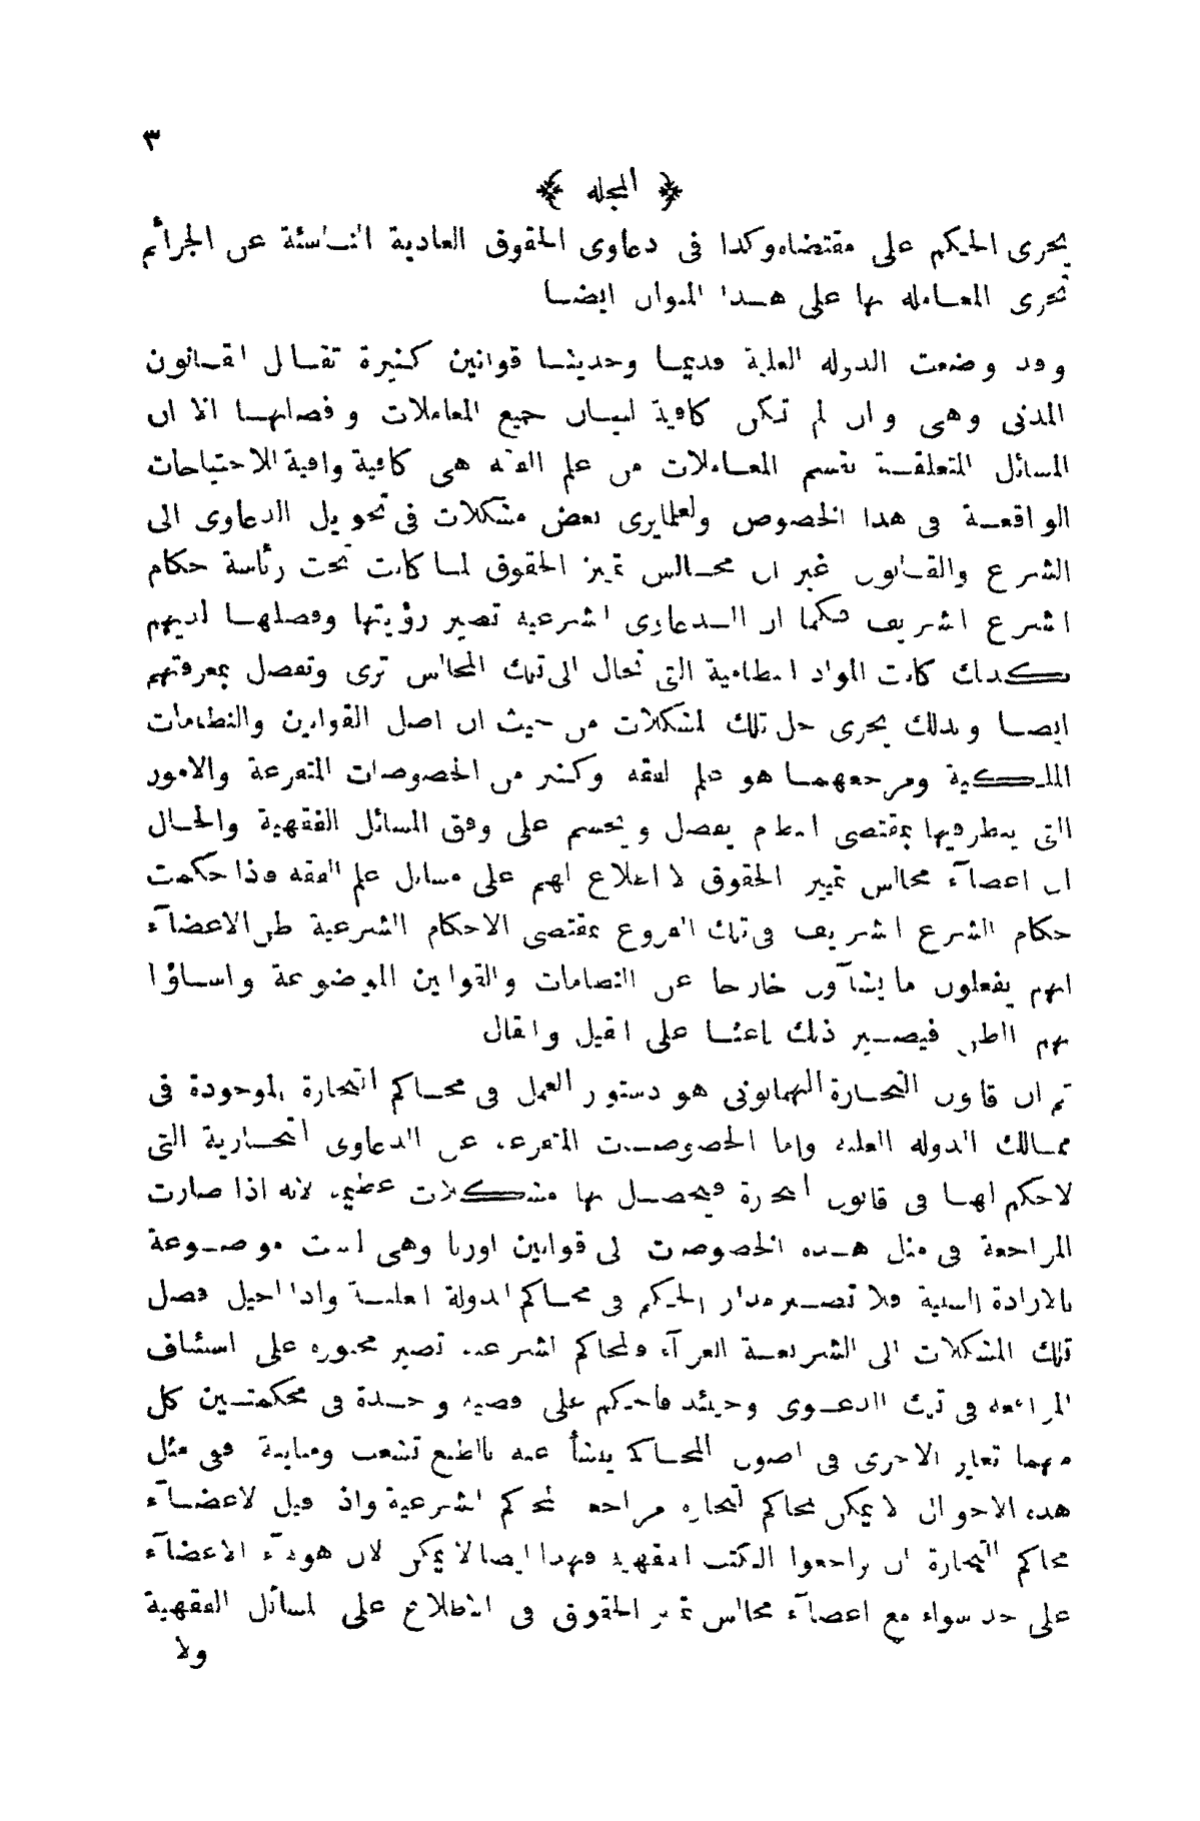 ٣
﴿ المجله ﴾
يجرى الحكم على مقتضاه وكذا فى دعاوى الحقوق العادية الناشئة عن الجرائم
تجرى المعامله بها على هذا المنوال ايضا
وقد وضعت الدوله العلية قديما وحديثا قوانين كثيرة تقابل القانون
المدنى وهى وان لم تكن كافية لبيان جميع المعاملات وفصلها الا ان
المسائل المتعلقة بقسم المعاملات من علم الفقه هى كافية وافية للاحتياجات
الواقعة فى هذا الخصوص ولعلمايرى بعض مشكلات فى تحويل الدعاوى الى
الشرع والقانون غير ان مجالس تمييز الحقوق لما كانت تحت رئاسة حكام
الشرع الشريف فكما ان الدعاوى الشرعية تصير رؤيتها وفصلها لديهم
كذلك كانت المواد النظامية التى تحال الى تلك المجالس ترى وتفصل بمعرفتهم
ايضا وبذلك يجرى حل تلك المشكلات من حيث ان اصل القوانين والنظامات
الملكية ومرجعهما هو علم الفقه وكثير من الخصوصات المتفرعة والامور
التى ينظر فيها بمقتضى النظام يفصل ويحسم على وفق المسائل الفقهية والحال
ان اعضآء مجالس تمييز الحقوق لا اطلاع لهم على مسائل علم الفقه فاذا حكمت
حكام الشرع الشريف فى تلك الفروع بمقتضى الاحكام الشرعية ظن الاعضآء
انهم يفعلون ما يشآون خارجا عن النظامات والقوانين الموضوعة واساؤا
بهم الظن فيصير ذلك باعثا على القيل والقال
ثم ان قانون التجارة الهمايونى هو دستور العمل فى محاكم التجارة الموجودة فى
ممالك الدوله العليه واما الخصوصات المتفرعه عن الدعاوى التجارية التى
لاحكم لها فى قانون التجارة فيحصل بها مشكلات عظيمه لانه اذا صارت
المراجعة فى مثل هذه الخصوصات الى قوانين اوربا وهى ليست موضوعة
بالارادة السنية فلا تصير مدار الحكم فى محاكم الدولة العلية واذا احيل فصل
تلك المشكلات الى الشريعة الغرآء فالمحاكم الشرعيه تصير مجبوره على استئناف
المرافعه فى تلك الدعوى وحينئذ فالحكم على قضيه واحدة فى محكمتين كل
منهما تغاير الاخرى فى اصول المحاكمة ينشأ عنه بالطبع تشعب ومباينة ففى مثل
هذه الاحوال لا يمكن لمحاكم التجاره مراجعة المحاكم الشرعية واذا قيل لاعضآء
محاكم التجارة ان يراجعوا الكتب الفقهية فهذا ايضا لا يمكن لان هولآء الاعضآء
على حد سواء مع اعضآء مجالس تمييز الحقوق فى الاطلاع على المسائل الفقهية
ولا